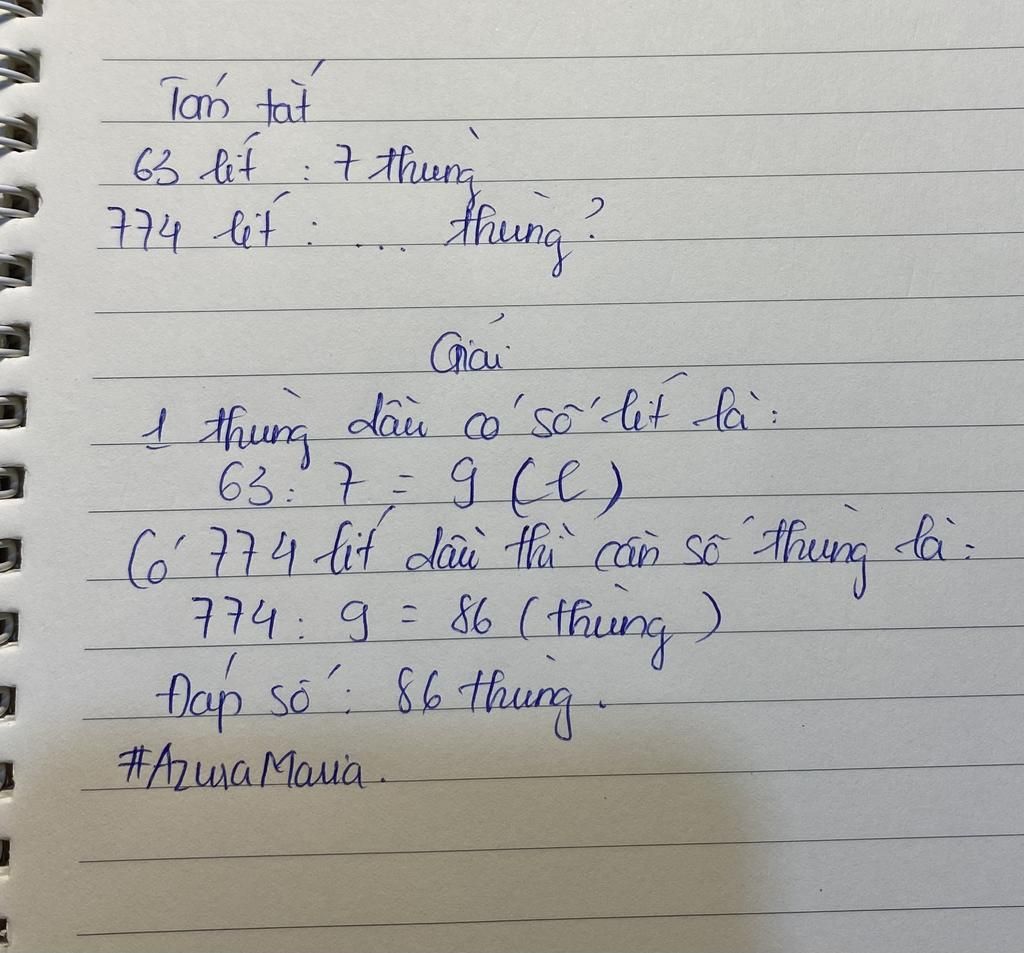 Tóm tắt
63 lít : 7 thùng
774 lít : .... thùng?
Giải
1 thùng dầu có số lít là :
63 : 7 = 9 (l)
Có 774 lít dầu thì cần số thùng là :
774 : 9 = 86 (thùng)
Đáp số : 86 thùng.
#AzuraMaria.